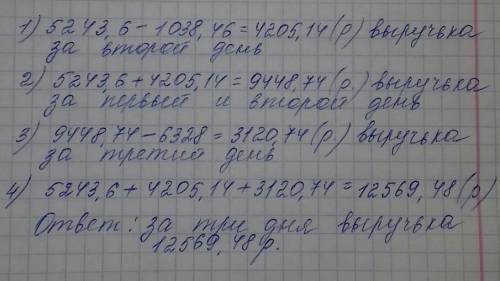 1) 5243,6 - 1038,46 = 4205,14 (р) выручька
за второй день
2) 5243,6 + 4205,14 = 9448,74 (р.) выручька
за первый и второй день
3) 9448,74 - 6328 = 3120,74 (р.) выручька
за третий день
4) 5243,6 + 4205,14 + 3120,74 = 12569,48 (р)
Ответ: за три дня выручька
12569,48 р.